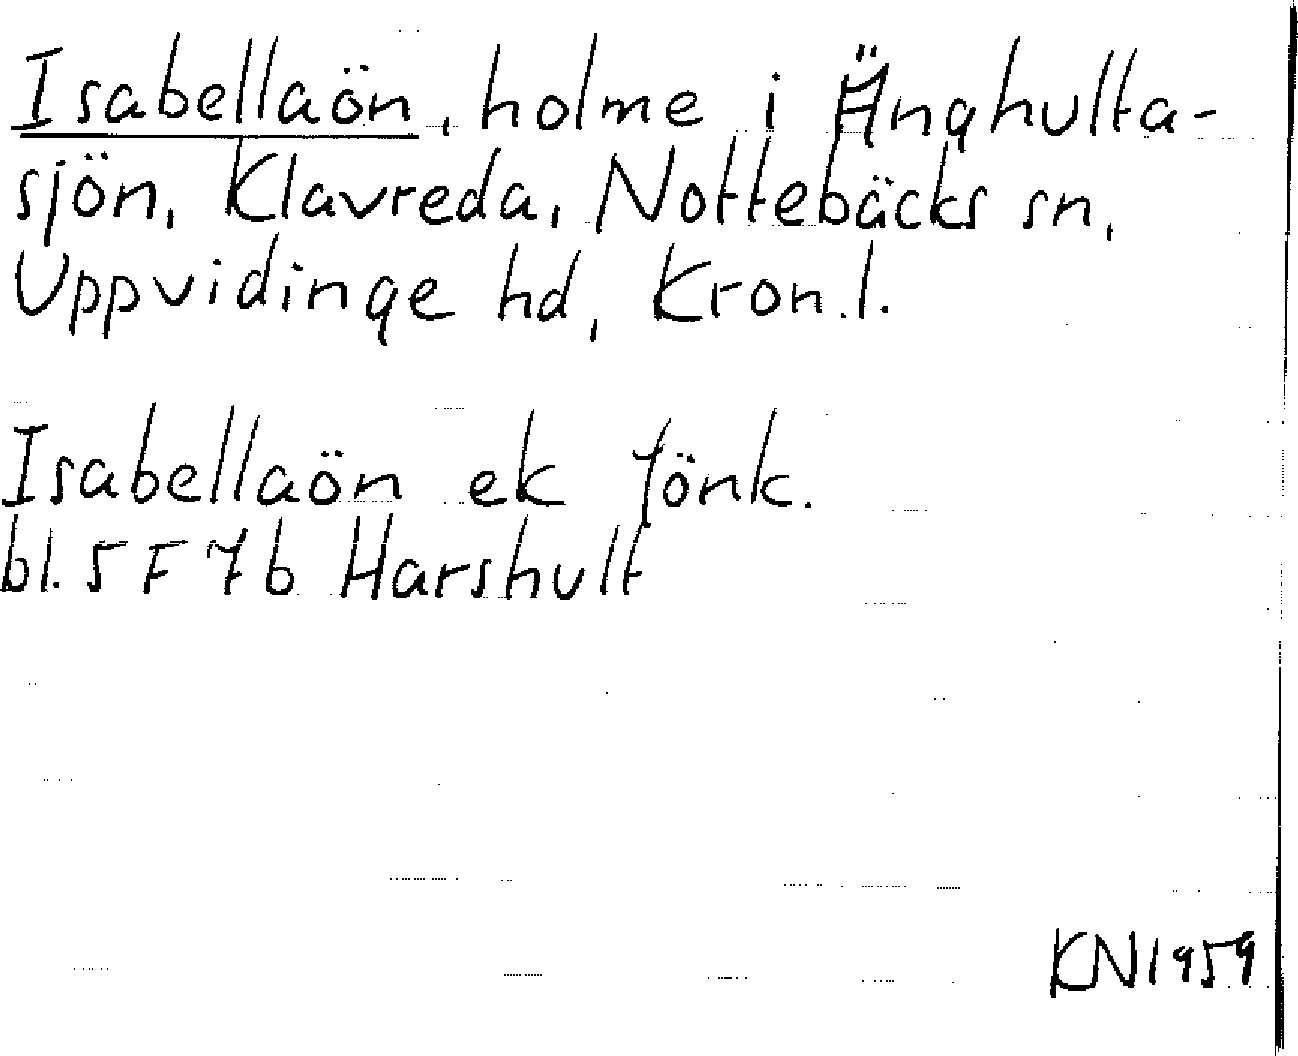 Isabellaön, holme i Änghulta-
sjön, Klavreda, Nottebäcks sn,
Uppvidinge hd, Kron.l.
Isabellaön ek Jönk.
bl. 5 F 7 b Harshult
KN1959